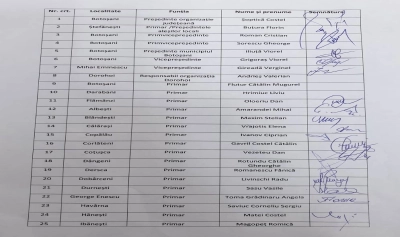 Nr. crt. Localitate Funtia Nume și prenume Semnătura
1 Botoșani Președinte organizație județeană Șoptică Costel
2 Ștefănești Primar /Președintele aleșilor locali Buțura Florin
3 Botoșani Primvicepreședinte Roman Cristian
4 Botoșani Primvicepreședinte Sorescu Gheorge
5 Botoșani Președinte municipiul Botoșani Iliuță Viorel
6 Botoșani Vicepreședinte Grigoraș Viorel
7 Mihai Eminescu Vicepreședinte Gireadă Verginel
8 Dorohoi Responsabil organizația Dorohoi Andrieș Valerian
9 Botoșani Primar Flutur Cătălin Mugurel
10 Darabani Primar Hrimiuc Liviu
11 Flămânzi Primar Oloeriu Dan
12 Albești Primar Amarandei Mihai
13 Blândești Primar Maxim Stelian
14 Călărași Primar Vrajotis Elena
15 Copălău Primar Ivanov Ciprian
16 Corlăteni Primar Gavril Costel Cătălin
17 Coțușca Primar Vezeteu Dan
18 Dângeni Primar Rotundu Cătălin Gheorghe
19 Primar Romanescu Fănică
20 Dobârceni Primar Livinschi Radu
21 Durnești Primar Sasu Vasile
22 George Enescu Primar Toma Grădinaru Angela
23 Havârna Primar Saviuc Corneliu Sergiu
24 Hănești Primar Matei Costel
25 Hlipiceni Primar Magopeț Romică